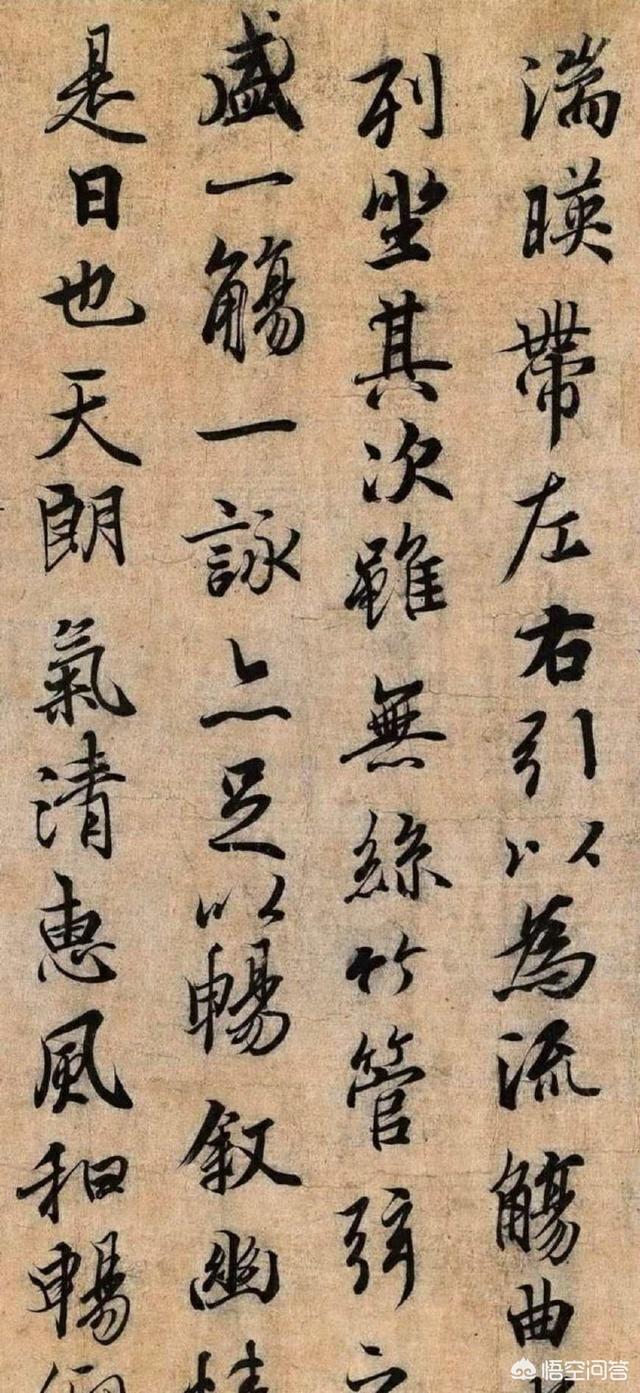 湍暎帶左右引以為流觴曲
列坐其次雖無絲竹管弦之
盛一觴一詠亦足以暢叙幽情
是日也天朗氣清惠風和暢仰
悟空问答